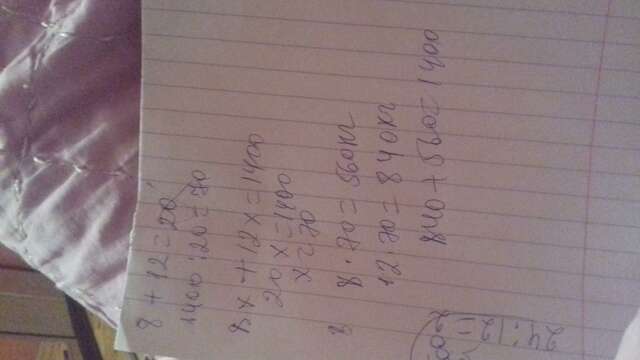 8 + 12 = 20
1400 : 20 = 70
8x + 12x = 1400
20x = 1400
x = 70
8
8 · 70 = 560кг
12 · 70 = 840кг
840 + 560 = 1400